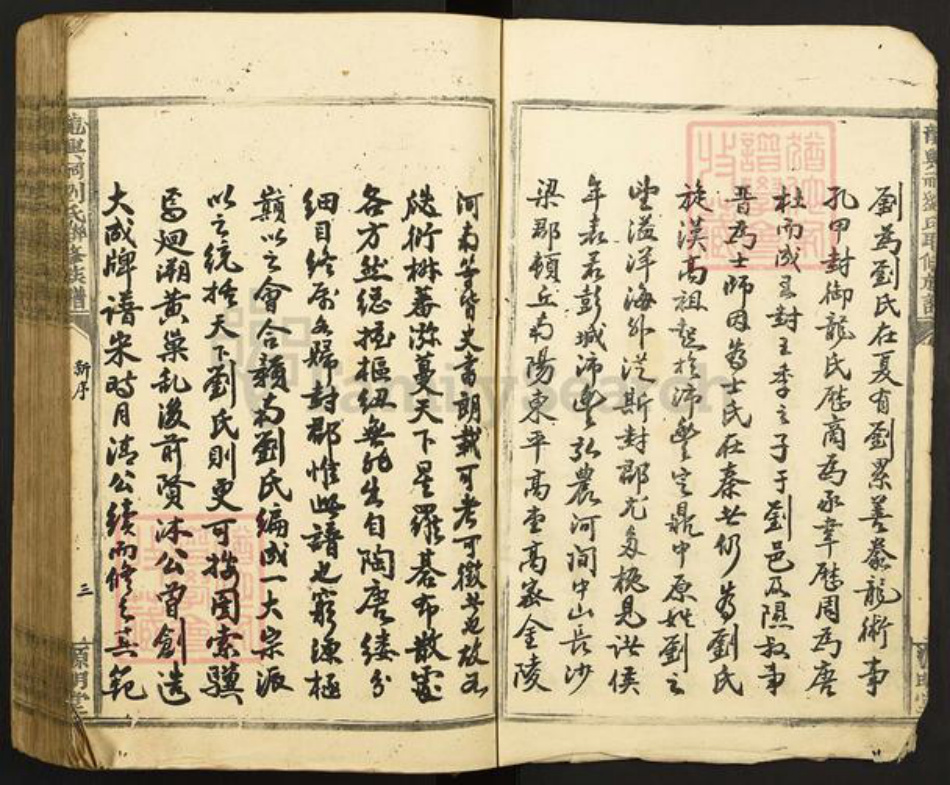 劉為劉氏在夏有劉累善豢龍術事
孔甲封御龍氏歷商為豕韋歷周為唐
杜而成王封王季之子于劉邑及隰叔事
晋為士師因為士氏在秦者仍為劉氏
旋漢高祖起於沛豐定鼎中原姓劉之
望溢洋海外從斯封郡尤多概見諸侯
年表若彭城沛豐弘農河間中山長沙
梁郡頓丘南陽東平高堂高密金陵
河南等皆史書朗載可考可徵者也故
瓞衍椒蕃瀰蔓天下星羅碁布散處
各方然總握樞紐無非生自陶唐縷分
細目終屬封郡惟此譜也窮源極
巔以之會合穎南劉氏編成一大宗派
以之統括天下劉氏則更可按圖索驥
焉廻溯黃巢亂後前賢沐公曾創造
大成牌譜宋時月清公續而修之其範
龍興河劉氏聯修族譜
新序
三
FamilySearch